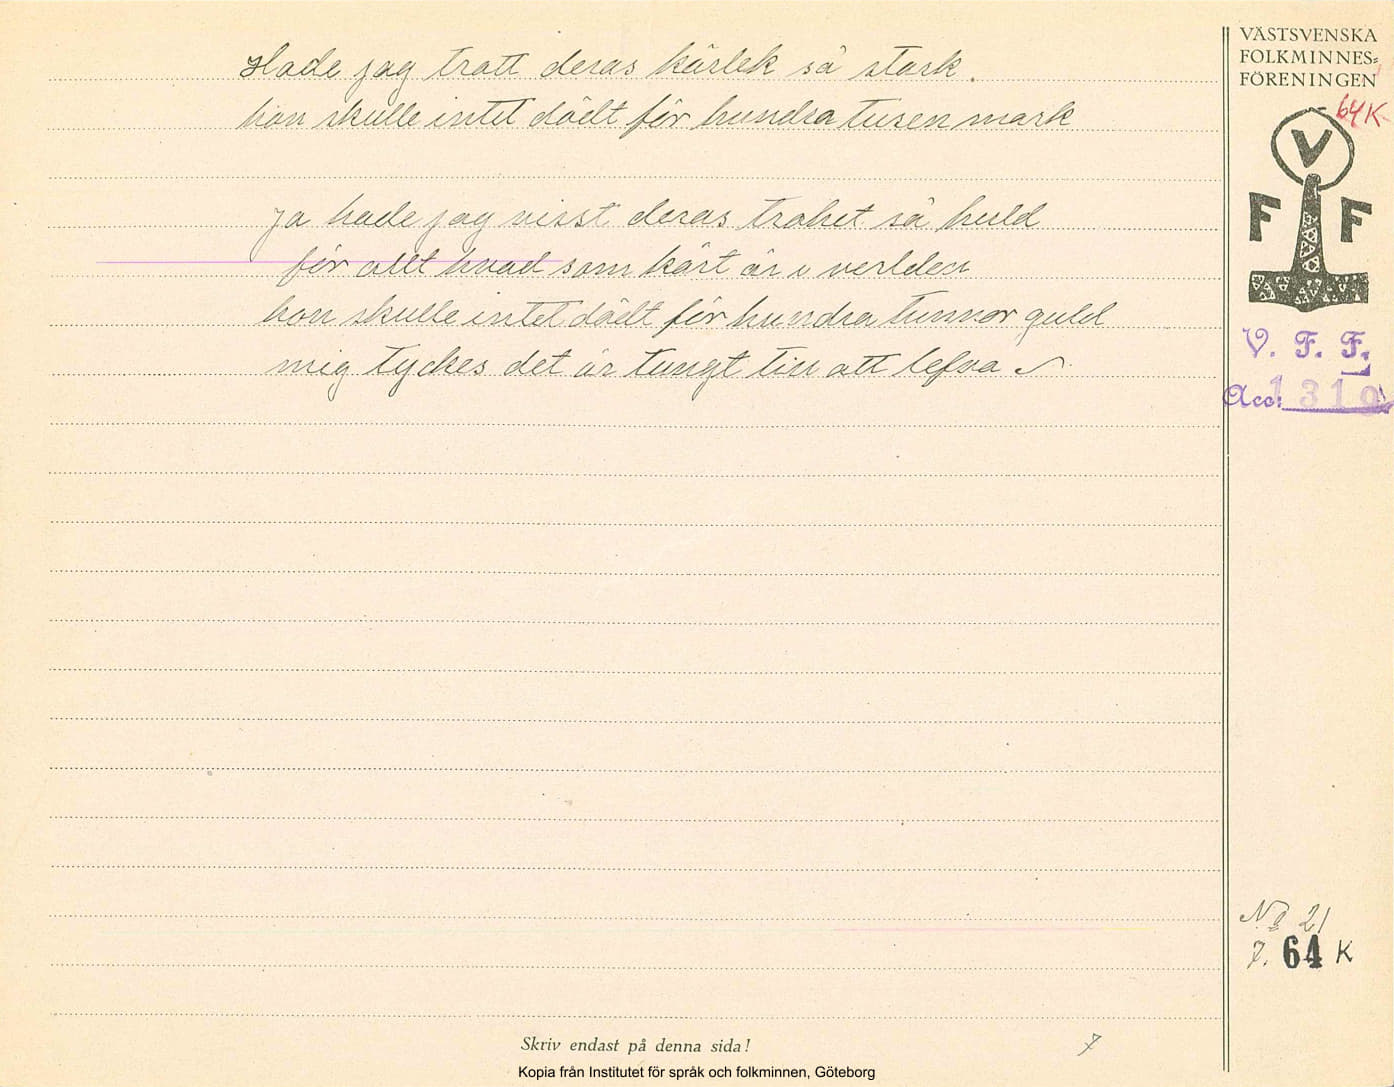 Hade jag trott deras kärlek så stark.
hon skulle intet dödt för hundra tusen mark
Ja hade jag visst deras trohet så huld
för allt hvad som kärt är i verlden
hon skulle intet dödt för hundra tunnor guld
mig tyckes det är tungt till att lefva
VÄSTSVENSKA
FOLKMINNES=
FÖRENINGEN
64K
V
F F
V. F. F.
Acc: 1319
No 21
7. 64 K
Skriv endast på denna sida!
7
Kopia från Institutet för språk och folkminnen, Göteborg